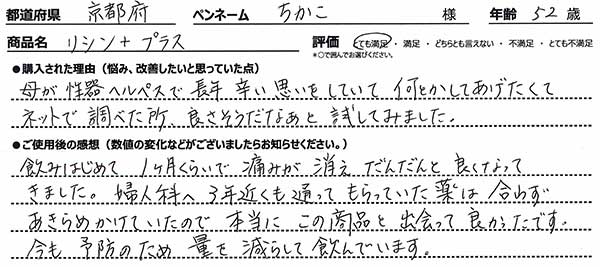 都道府県 京都府 ペンネーム ちかこ 様 年齢 52 歳
商品名 リシン＋プラス 評価 とても満足・満足・どちらとも言えない・不満足・とても不満足
＊○で囲んでお選びください。
●購入された理由（悩み、改善したいと思っていた点）
母が性器ヘルペスで長年辛い思いをしていて何とかしてあげたくて
ネットで調べた所、良さそうだなあと試してみました。
●ご使用後の感想（数値の変化などがございましたらお知らせください。）
飲みはじめて1ヶ月くらいで痛みが消えだんだんと良くなって
きました。婦人科へ3年近くも通ってもらっていた薬は合わず
あきらめかけていたので本当にこの商品と出会って良かったです。
今も予防のため量を減らして飲んでいます。